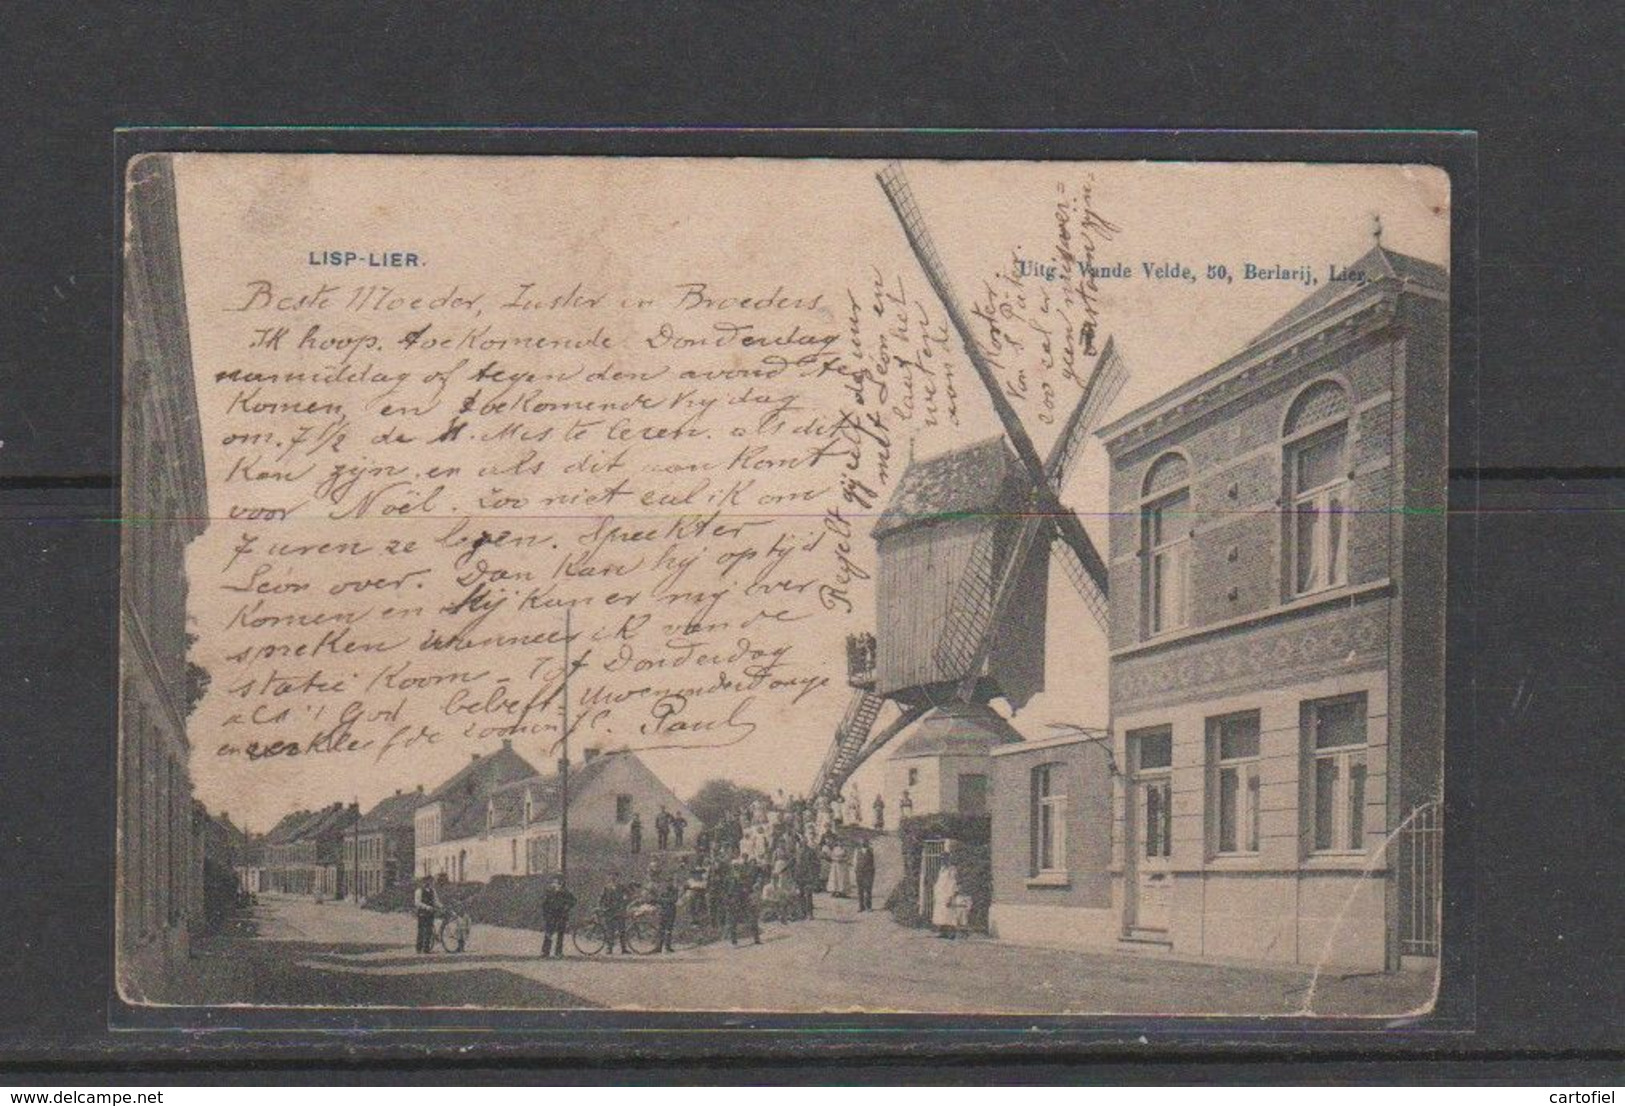 LISP-LIER.
Uitg. Vande Velde, 50, Berlarij, Lier.
Beste Moeder, Zuster en Broeders
Ik hoop. toekomende Donderdag
namiddag of tegen den avond te
Komen, en toekomende Vrijdag
om. 7 1/2 de H. Mis te lezen. als dit
Kan zijn en als dit aan Komt
voor Noël. Zoo niet zal ik om
7 uren ze lezen. Spreekter
Léon over. Dan Kan hij op tijd
Komen en Hij kan er mij over
spreken wanneer ik van de
statie Koom - Tot Donderdag
als 't God belieft. Uw
en de zoon Paul
Regelt gij zelf de uur
met Léon en
laat het
weten
aan de
Koster
Van St Pieter.
zoo zal er
geen misver=
standen zijn.
cartofiel